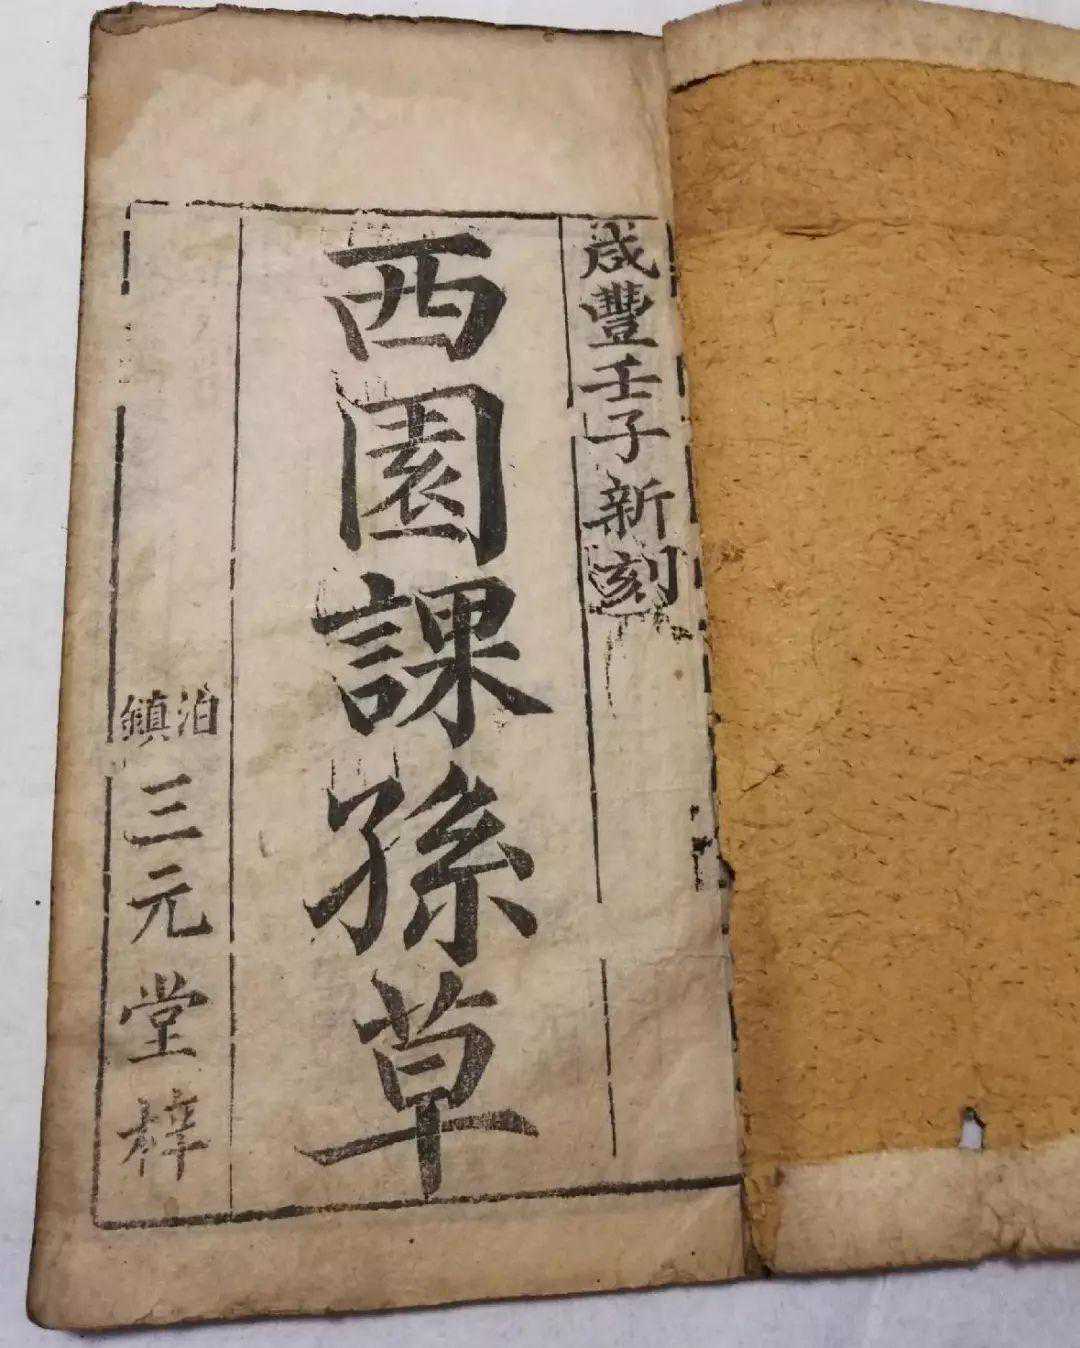 咸豐壬子新刻
西園課孫草
泊鎮三元堂梓